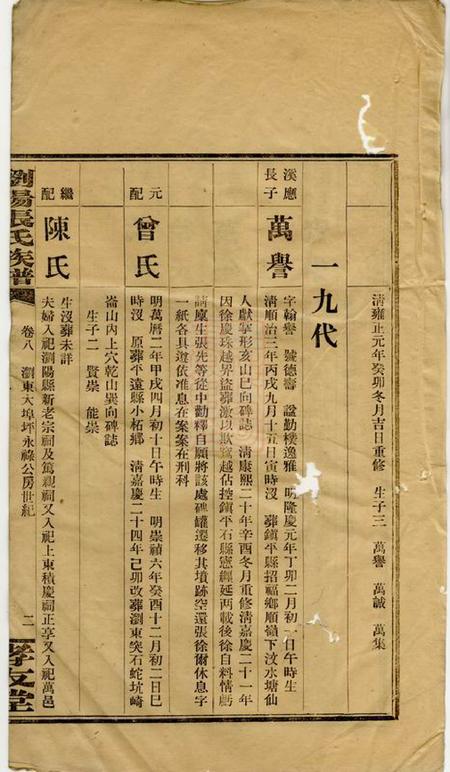 清雍正元年癸卯冬月吉日重修 生子三 萬譽 萬誠 萬集
一九代
溪應長子
萬譽
字翰譽 號德壽 謚勤樸逸雅 明隆慶元年丁卯二月初一日午時生
清順治三年丙戌九月十五日寅時沒 葬鎮平縣招福鄉順嶺下汶水塘仙
人獻掌形亥山巳向碑誌 清康熙二十年辛酉冬月重修清嘉慶二十一年
因徐慶珠越界盜葬激以欺冢越佔控鎮平石縣憲纏延兩載後徐自料情虧
請廩生張先等從中勸釋自願將該處碑罐遷移其墳跡空還張徐爾休息字
一紙各具遵依准息在案案在刑科
元配
曾氏
明萬曆二年甲戌四月初十日午時生 明崇禎六年癸酉十二月初二日巳
時沒 原葬平遠縣小柘鄉 清嘉慶二十四年己卯改葬瀏東突石蛇坑崎
崙山內上穴乾山巽向碑誌
生子二 賢崇 能崇
繼配
陳氏
生沒葬未詳
夫婦入祀瀏陽縣新老宗祠及篤親祠又入祀上東積慶祠正享又入祀萬邑
瀏陽張氏族譜
卷八 瀏東大埠坪永祿公房世紀
二
孝友堂